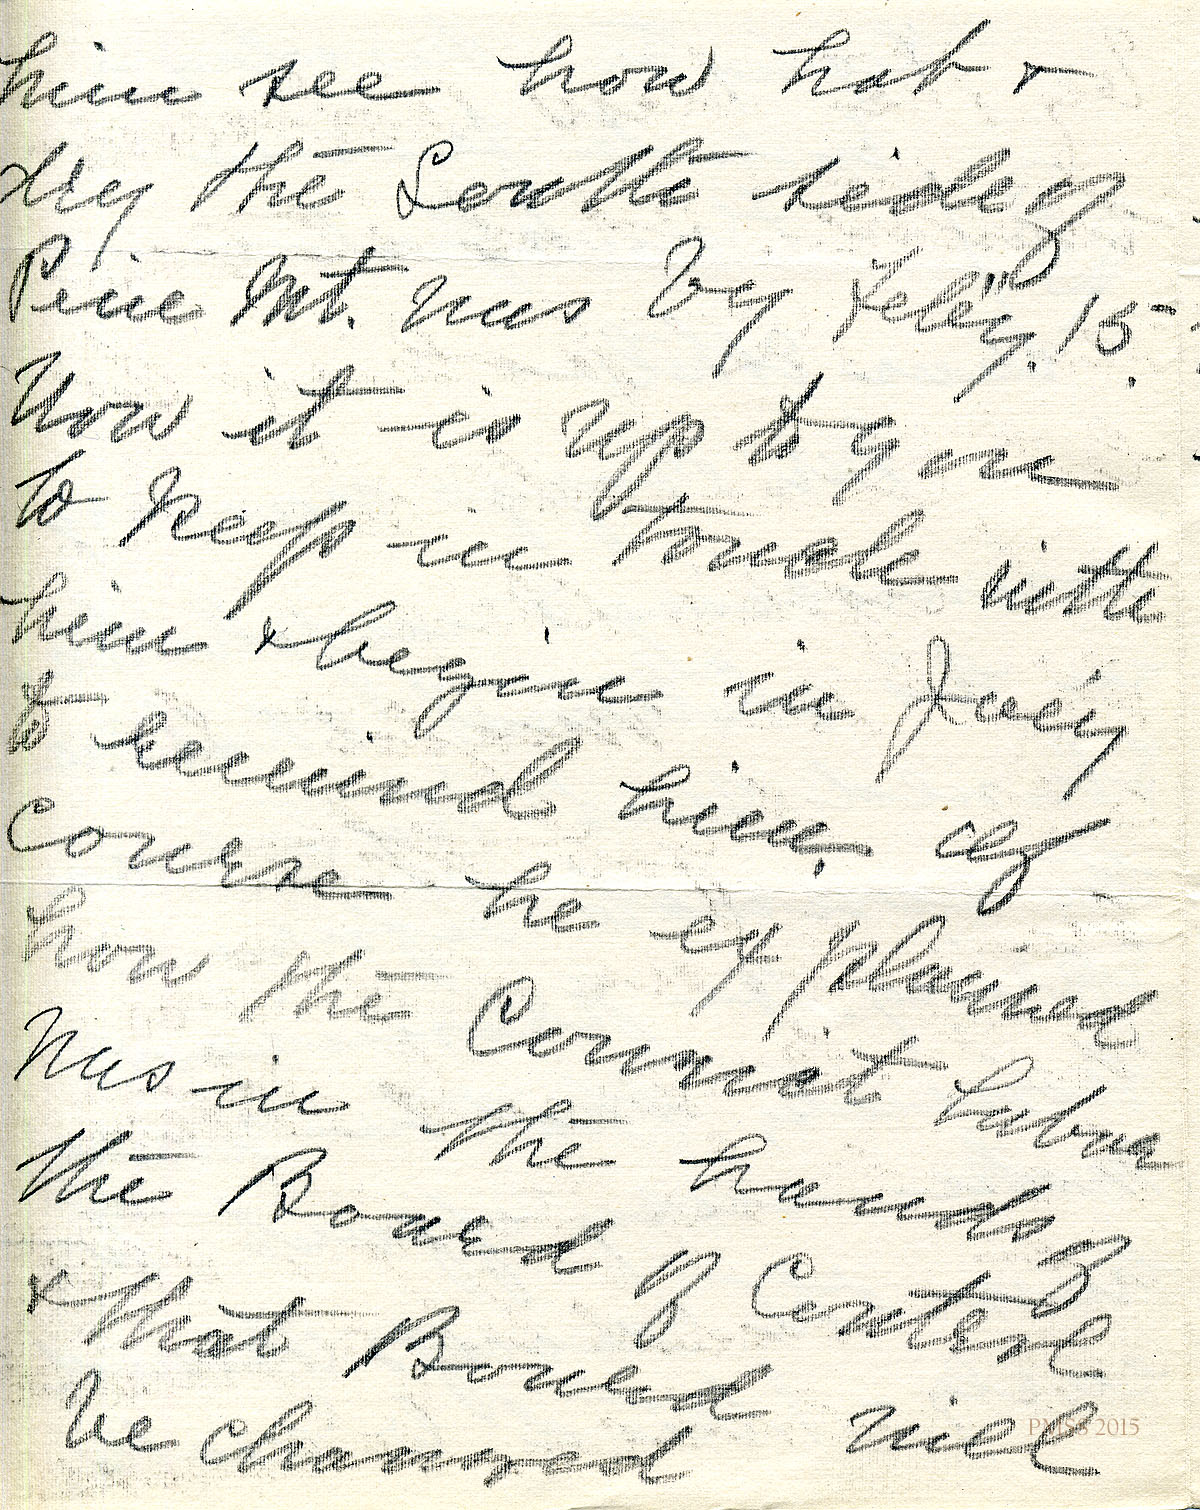 him see how hot &
dry the South side of
Pine Mt. was by Feb'y. 15-
Now it is up to you
to keep in touch with
him & begin in Jan'y
to remind him, of
course he explained
how the Convict Labor
was in the hands of
the Board of Control
& that Board will
be changed
PMSS 2015